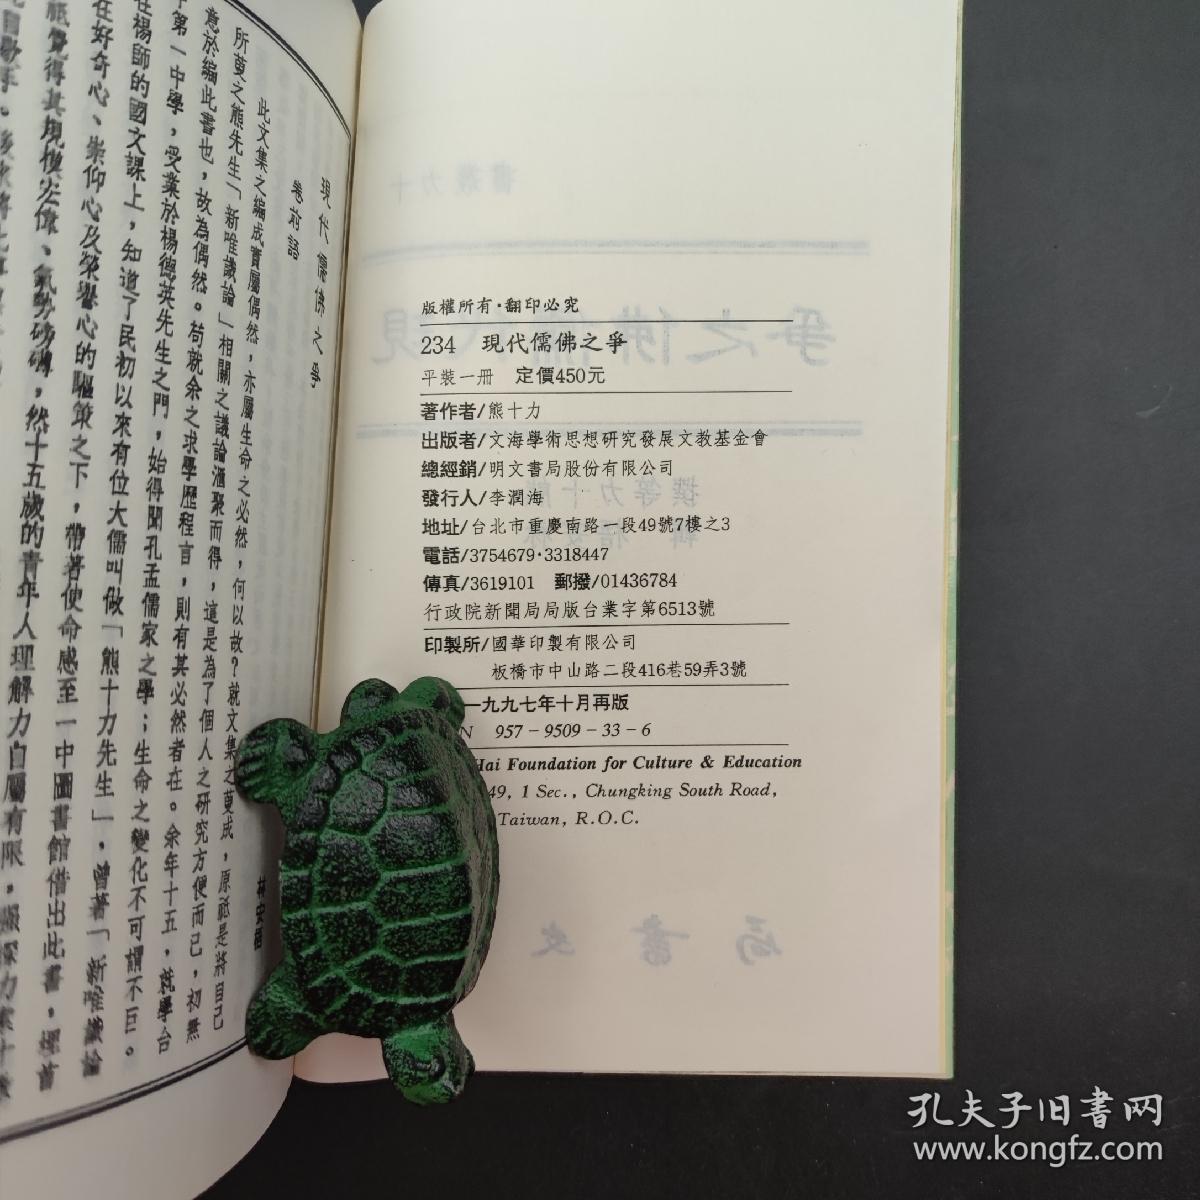 現代儒佛之爭
卷前語
林安梧
此文集之編成實屬偶然,亦屬生命之必然,何以故?就文集之
成,原祇是將自己
所
之熊先生「新唯識論」相關之議論滙聚而得,這是為了個人之研究方便而已,初無
意於編此書也,故為偶然。苟就余之求學歷程言,則有其必然者在。余年十五,就學台
中第一中學,受業於楊德英先生之門,始得聞孔孟儒家之學;生命之變化不可謂不巨。
在楊師的國文課上,知道了民初以來有位大儒叫做「熊十力先生」,曾著「新唯識論
在好奇心、崇仰心及榮譽心的驅策之下,帶著使命感至一中圖書館借出此書,埋首
祇覺得其規模宏偉、氣勢磅礡,然十五歲的青年人理解力自屬有限,
十力叢書
現代儒佛之爭
熊十力等撰
林安梧 輯
文書局
版權所有·翻印必究
234 現代儒佛之爭
平裝一冊 定價450元
著作者/熊十力
出版者/文海學術思想研究發展文教基金會
總經銷/明文書局股份有限公司
發行人/李潤海
地址/台北市重慶南路一段49號7樓之3
電話/3754679·3318447
傳真/3619101 郵撥/01436784
行政院新聞局局版台業字第6513號
印製所/國華印製有限公司
板橋市中山路二段416巷59弄3號
一九九七年十月再版
N 957-9509-33-6
Hai Foundation for Culture & Education
49, 1 Sec., Chungking South Road,
Taiwan, R.O.C.
孔夫子旧书网
www.kongfz.com